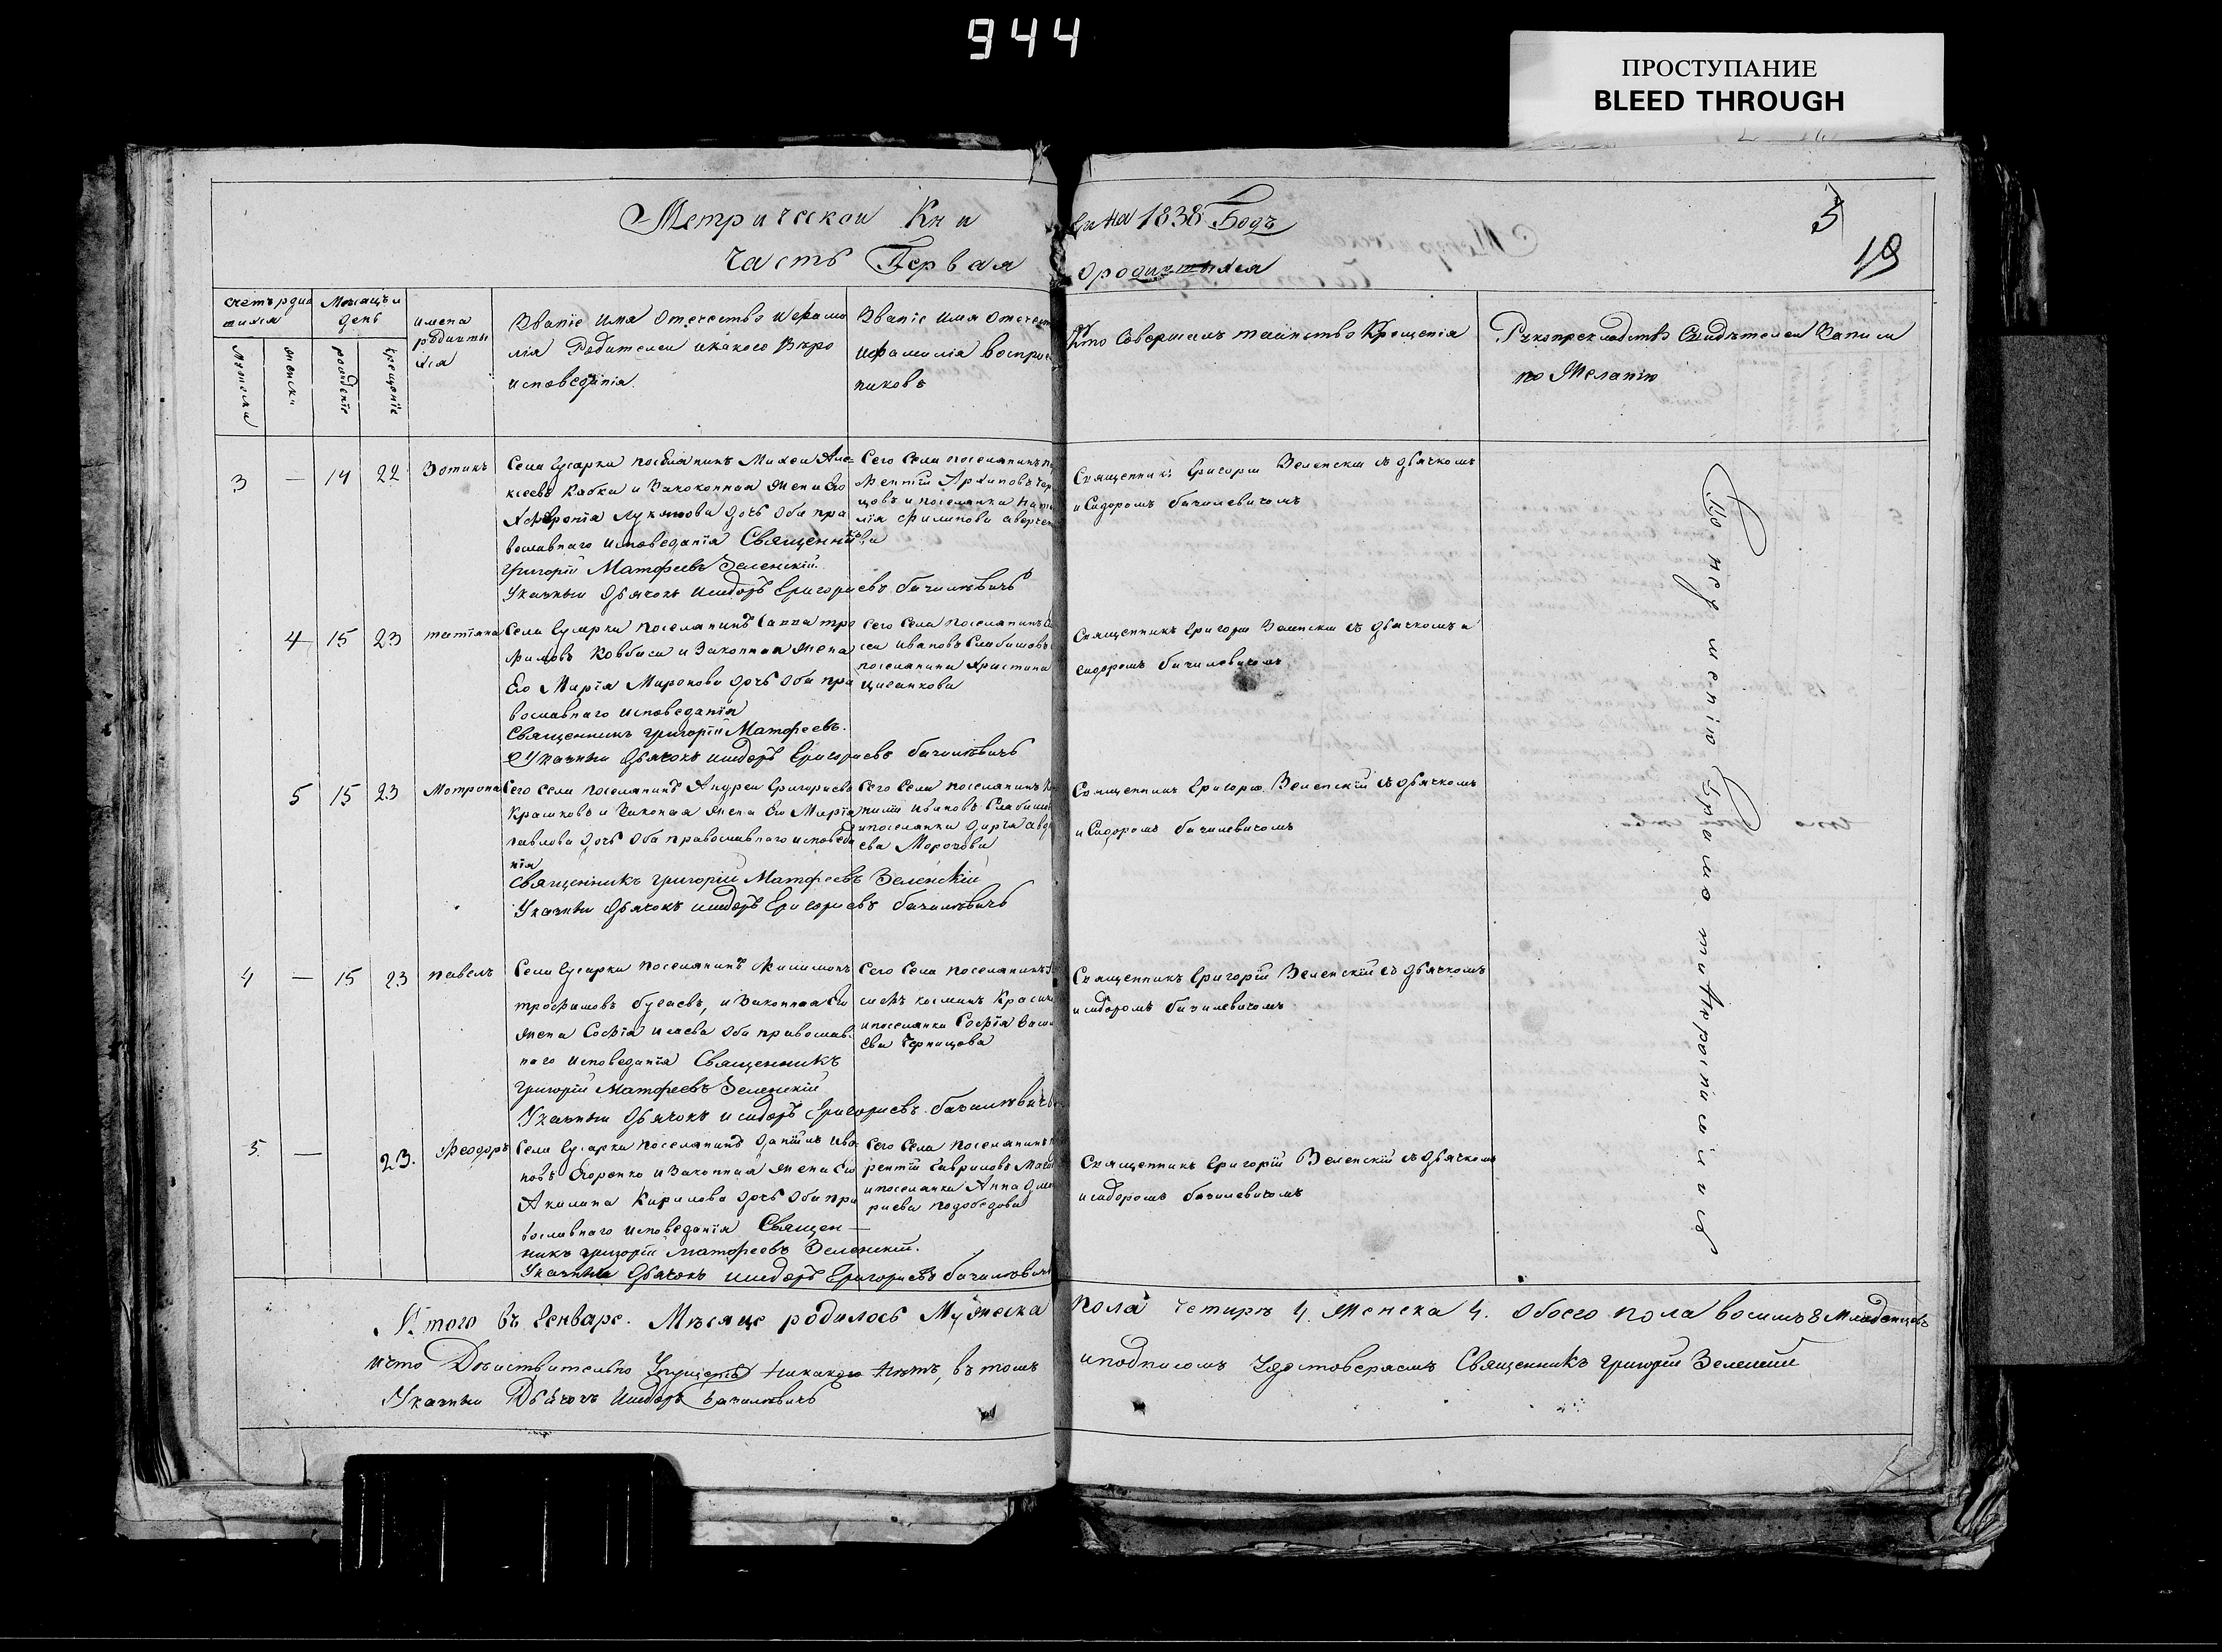 944
ПРОСТУПАНИЕ
BLEED THROUGH
Метрической Кни ги на 1838 Годъ
Часть Первая о родившихся
5
19
счетъ родив шихся
Мѣсяцъ и день
имена родившы хся
Званіе Имя Отечество и фами
лія Родителей и какого Вѣро
исповеданія.
Званіе имя Отечест
и фамилія воспрі
никовъ
Кто Совершалъ таинство Крещенія
Рукоприкладство Свидѣтелей Записи
по Желанію
мужески
женски
рождение
крещеніе
3 — 14 22 Зотикъ
Села Гусарки поселянинъ Михей Але=
ксеевъ Кабки и Законная жена Его
Лукянова дочь Оба пра
вославнаго исповеданія Священни
Григорій Матфеевъ Зеленскій.
Указный Дьячокъ Исидоръ Григориевъ Бачилѣвичъ
Сего Села поселянинъ
Архиповъ
цовъ и поселянка
лія Филипова
Священникъ Григорій Зеленскій съ дьячкомъ
и Сидоромъ бачилевичомъ
4 15 23 татіяна
Села Гусарки поселянинъ Савва тро
фимовъ Ковбаса и Законная жена
Его Марія Миронова дочь Оба пра
вославнаго исповеданія
Священникъ Григорій Матфеевъ.
Указный Дьячокъ Исидоръ Григориевъ бачилѣвичъ
Сего Села поселянинъ
сей ивановъ Слабишовъ
поселянина Христина
Циганкова
Священникъ Григорій Зеленскій съ дьячкомъ и
сидоромъ бачилевичомъ
5 15 23 Мотрона
Сего Села поселянинъ Андрей Григориевъ
Крашковъ и Законая жена Его Марія
павлова дочь Оба православнаго исповеда
нія
Священникъ Григорій Матфеевъ Зеленскій
Указный Дьячокъ Исидоръ Григориевъ бачилѣвичъ
Сего Села поселянинъ
ивановъ Слабишо
и поселянка Дарія авде
ева Морозова
Священникъ Григорій Зеленскій съ дьячкомъ
и Сидоромъ бачилевичомъ
4 — 15 23 павелъ
Села Гусарки поселянинъ Филимонъ
трофимовъ бугаевъ, и Законная Его
жена Софія исаева Оба православ
наго исповеданія Священникъ
Григорій Матфеевъ Зеленскій
Указный Дьячокъ исидоръ Григориевъ. бачилѣвичъ
Сего Села поселянинъ
козминъ
и поселянка Софія
ева Чернцова
Священникъ Григорій Зеленскій съ дьячкомъ
исидоромъ бачилевичомъ
5 — 23. Феодоръ
Села Гусарки поселянинъ Даніилъ ива
новъ Егоренко и Законная жена Его
Акилина Кирилова дочь Оба пра
вославнаго исповеданія Священ—
никъ Григорій Матфеевъ Зеленскій.
Указный Дьячокъ Исидоръ Григориевъ бачилѣвичъ
Сего Села поселянинъ
рентій Гавриловъ
и поселянка Анна Дми
риева подобедова
Священникъ Григорій Зеленскій съ дьячкомъ
исидоромъ бачилевичомъ
По неумению Грамо
Итого въ Генваре. Мѣсяце родилось Мужеска пола четирѣ 4, Женска 4. Обоего пола восимъ 8 младенцевъ
ичто Дѣиствительно Упущеній никакого нѣтъ, въ томъ и подписомъ Удостоверяемъ Священникъ Григорій Зеленскій
Указный Дьячокъ Исидоръ Бачилѣвичъ